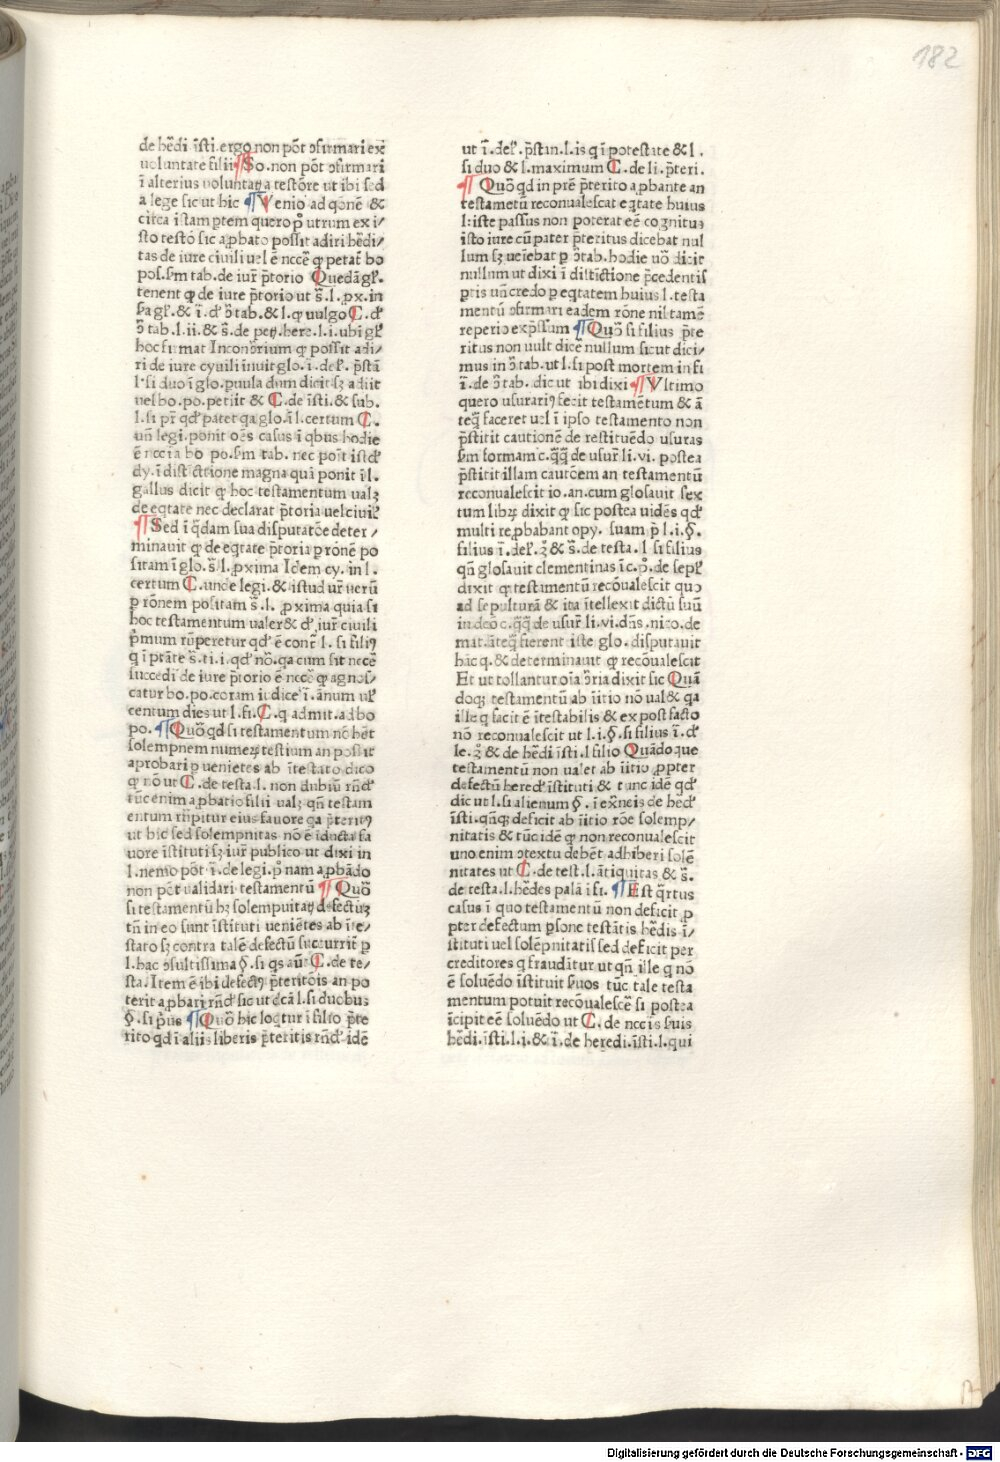 182
de hēdi īsti. ergo non pōt ↄfirmari ex
uoluntate filii ¶ So. non pōt ↄfirmari
ī alterius voluntaꝫ a testōre ut ibi sed
a lege sic ut hic ¶ Venio ad qōnē &
circa istam ptem quero pͦ utrum ex i/
sto testō sic aꝓbato possit adiri hēdi/
tas de iure ciuili uel ē nccē ꝙ petat̄ bo
pos. s̄m tab. de iur̄ p̄torio Quedā gl̓.
tenent ꝙ de iure p̄torio ut s̄. l. ꝓx. in
gl̓. & ī. đ ↄ̄ tab. & l. ꝙ uulgo C. đ
ↄ̄ tab. l. ii. & s̄. de peꝫ. here. l. i. ubi gl̓
hoc firmat In ↄ̄rium ꝙ possit adi/
ri de iure cyuili inuit glo. ī. del̓. p̄stā
l. si duo ī glo. puula dum dicit sꝫ adiit
uel bo. po. petiit & C. de īsti. & sub.
l. si pr̄ qđ patet qa glo. ī l. certum C.
un̄ legi. ponit oēs casus ī qbus hodie
ē nccīa bo po. s̄m tab. nec pōit istđ
dy. ī distīctione magna quā ponit ī l.
gallus dicit ꝙ hoc testamentum ualꝫ
de eqtate nec declarat p̄toria uel ciuil̓
¶ Sed ī qdam sua disputatōe deter/
minauit ꝙ de eqtate p̄toria ꝓ rōnē po
sitam ī glo. s̄. l. ꝓxima Idem cy. in l.
certum C. unde legi. & istud ur̄ uerū
ꝓ rōnem positam s̄. l. ꝓxima quia si
hoc testamentum ualer̄ & đ iur̄ ciuili
p̄mum rūperetur qđ ē contr̄ l. si filiꝰ
q ī p̄tāte s̄. ti. i. qđ nō. qa cum sit nccē
succedi de iure p̄torio ē nccē ꝙ agnos/
catur bo. po. coram iudice ī. ānum ul̓
centum dies ut l. fi. C. q admit. ad bo
po. ¶ Quō qd si testamentum nō hēt
solempnem numeꝝ testium an possit
aprobari ꝑ uenietes ab ītestato dico
ꝙ nō ut C. de testa. l. non dubiū rn̄đ
tūc enim aꝓbatio filii ualꝫ qn̄ testam
entum rūpitur eius fauore qa p̄teritꝰ
ut hic sed solempnitas nō ē īducta fa
uore īstituti sꝫ iur̄ publico ut dixi in
l. nemo pōt ī. de legi. pͦ nam aꝓbādo
non pōt ualidari testamentū ¶ Quō
si testamentū hꝫ solempnitaꝫ defectūꝫ
tn̄ in eo sunt īstituti ueniētes ab īte/
stato sꝫ contra talē defectū succurrit̄ ꝑ
l. hac ↄsultissima §. si qs aut̄ C. de te/
sta. Item ē ibi defectꝰ p̄teritōis an po
terit aꝓbari rn̄đ sic ut đcā l. si duobus
§. si pͥus ¶ Quō hic loqtur ī filio p̄te
rito qd ī aliis liberis p̄teritis rn̄đ idē
ut ī. del̓. p̄stan. l. is q ī potestate & l.
si duo & l. maximum C. de li. p̄teri.
¶ Quō qd in prē p̄terito aꝓbante an
testametū reconualescat eqtate huius
l: iste passus non poterat eē cognitus
isto iure cū pater p̄teritus dicebat nul
lum sꝫ ueīebat ꝑ ↄ̄ tab. hodie uō dicit̄
nullum ut dixi ī distīctione p̄cedentis
ꝑtis un̄ credo ꝑ eqtatem huius l. testa
mentū ↄfirmari eadem rōne nil tamē
reperio exp̄ssum ¶ Quō si filius p̄te
ritus non uult dicē nullum sicut dici/
mus in ↄ̄ tab. ut l. si post mortem in fi
ī. de ↄ̄ tab. dic ut ibi dixi ¶ Vltimo
quero usurariꝰ fecit testamētum & ā
teꝙ faceret uel ī ipso testamento non
p̄stitit cautionē de restituēdo usuras
s̄m formam c. qꝙ de usur̄ li. vi. postea
p̄stitit illam cautōem an testamentū
reconualescit io. an. cum glosauit sex
tum libꝝ dixit ꝙ sic postea uidēs qđ
multi reꝓbabant opy. suam p̄ l. i. §.
filius ī. del̓. ꝫ̄ & s̄. de testa. l si filius
qn̄ glosauit clementinas ī c. p̄. de sepl̓
dixit ꝙ testamentū recōualescit quo
ad sepulturā & ita ītellexit dictū suū
in dcō c. qꝙ de usur̄ li. vi. dn̄s. nico. de
mat. āteꝙ fierent iste glo. disputauit
hāc q. & determinauit ꝙ recōualescit
Et ut tollantur oīa ↄ̄ria dixit sic Quā
doqꝫ testamentū ab īitio nō ual̄ & qa
ille q facit ē ītestabilis & ex post facto
nō reconualescit ut l. i. §. si filius ī. đ
le. ꝫ̄ & de hēdi īsti. l filio Quādoque
testamentū non ualet ab īitio ꝓpter
defectū heređ īstituti & tunc idē qđ
dic ut l. si alienum §. ī exn̄eis de heđ
īsti. qn̄qꝫ deficit ab īitio rōe solemp/
nitatis & tūc idē ꝙ non reconualescit
uno enim ↄtextu debēt adhiberi solē
nitates ut C. de test. l. ātiquitas & s̄.
de testa. l. hēdes palā ī fi. ¶ Est q̄rtus
casus ī quo testamentū non deficit ꝓ
pter defectum ꝑsone testātis hēdis ī/
stituti uel solēpnitatis sed deficit per
creditores q fraudātur ut qn̄ ille q nō
ē soluēdo īstituit s̄uos tūc tale testa
mentum potuit recōualescē si postea
īcipit eē soluēdo ut C. de nccīs s̄uis
hēdi. īsti. l. i. & ī. de heredi. īsti. l. qui
Digitalisierung gefördert durch die Deutsche Forschungsgemeinschaft - DFG